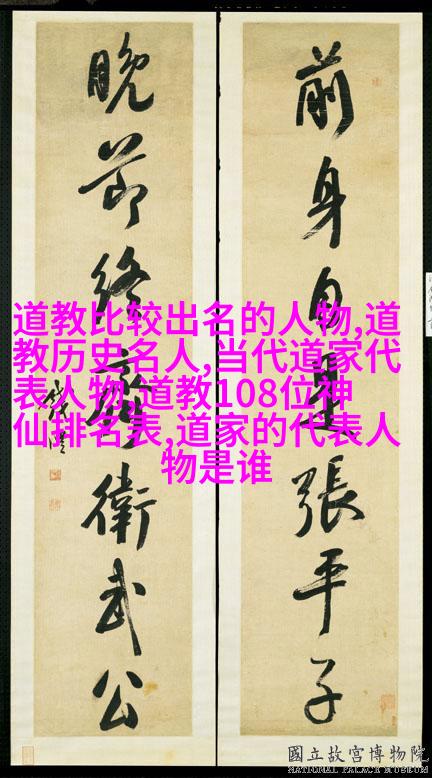 前身自是張平子
晚節終衛武公
道教比较出名的人物,道
教历史名人,当代道家代
表人物 道教108位神
仙排名表,道家的代表人
物是谁
國立故宮博物院
NATIONAL PALACE MUSEUM